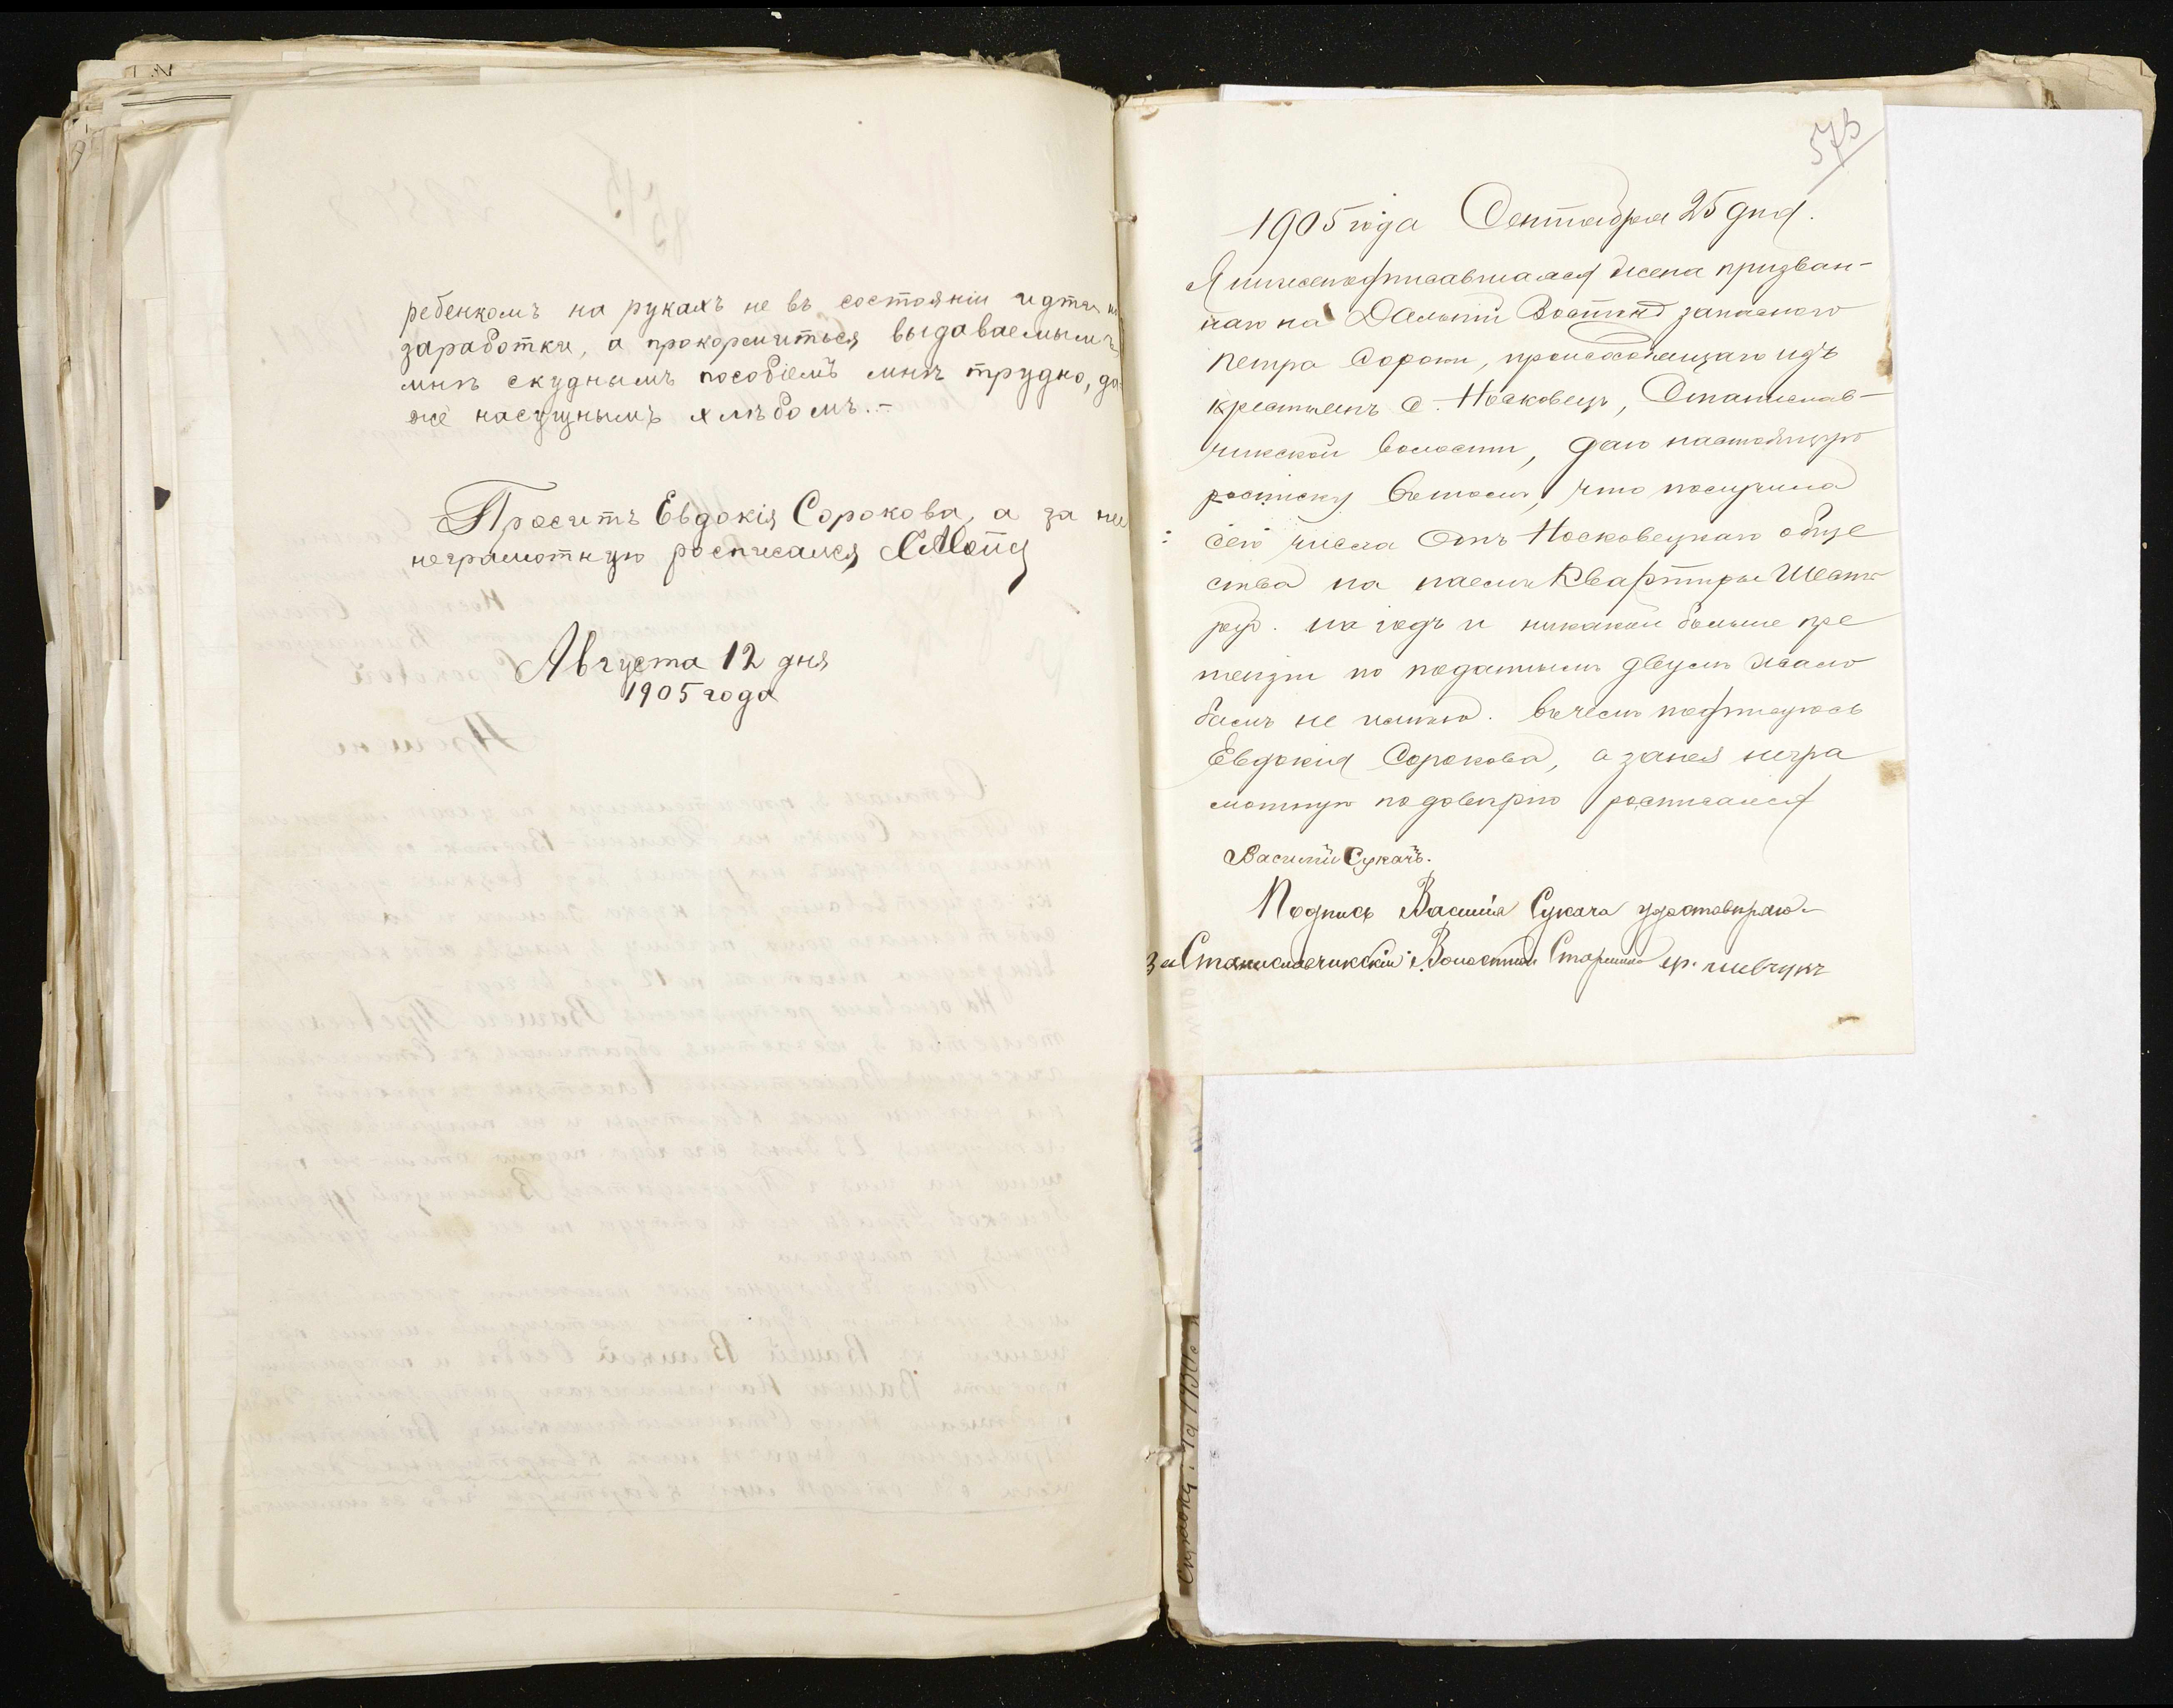 ребенкомъ на рукахъ не въ состояніи идти на
заработки, а прокормиться выдаваемымъ
мнѣ скуднымъ пособіемъ мнѣ трудно, да-
же насущнымъ хлѣбомъ.-
Проситъ Евдокія Сорокова, а за нее
неграмотную росписался
Августа 12 дня
1905 года
573
1905 года Сентября 25 дня.
Я нижеподписавшаяся жена призван-
наго на Дальній Востокъ запаснаго
Петра Сороки, происходящаго изъ
крестьянъ с. Носковецъ, Станислав-
чикской волости, даю настоящую
росписку въ томъ, что получила
сего числа отъ Носковецкаго обще
ства на наемъ квартиры Шесть
руб. на годъ и никакой больше пре
тензіи по поданнымъ двумъ жало
бамъ не имѣю. въ чемъ подписуюсь
Евдокия Сорокова, а за нея негра
мотную по довѣрію росписался
Василій Сукачъ.
Подпись Василія Сукача удостовѣряю-
За Станиславчикскій Волостной Старшина